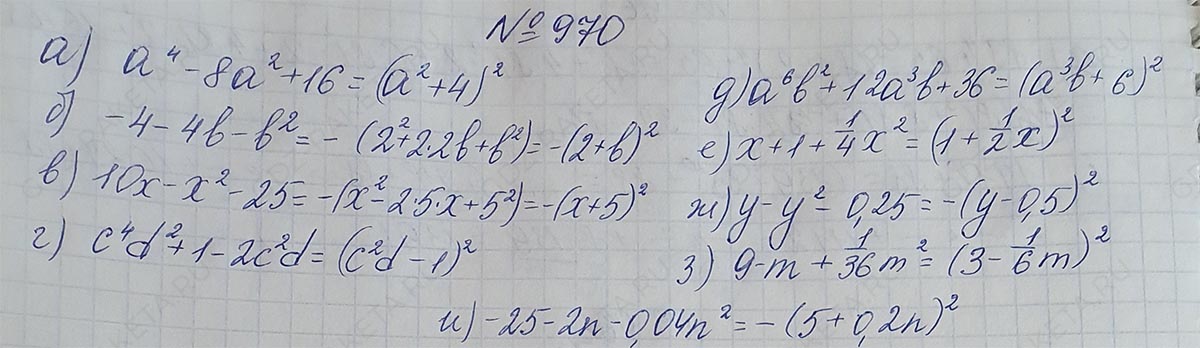 № 970
а) a⁴ - 8a² + 16 = (a² + 4)²
б) -4 - 4b - b² = -(2² + 2·2b + b²) = -(2+b)²
в) 10x - x² - 25 = -(x² - 2·5·x + 5²) = -(x+5)²
г) c⁴d² + 1 - 2c²d = (c²d - 1)²
д) a⁶b² + 12a³b + 36 = (a³b + 6)²
е) x + 1 + 1/4x² = (1 + 1/2x)²
ж) y - y² - 0,25 = -(y - 0,5)²
з) 9 - m + 1/36m² = (3 - 1/6m)²
и) -25 - 2n - 0,04n² = -(5 + 0,2n)²